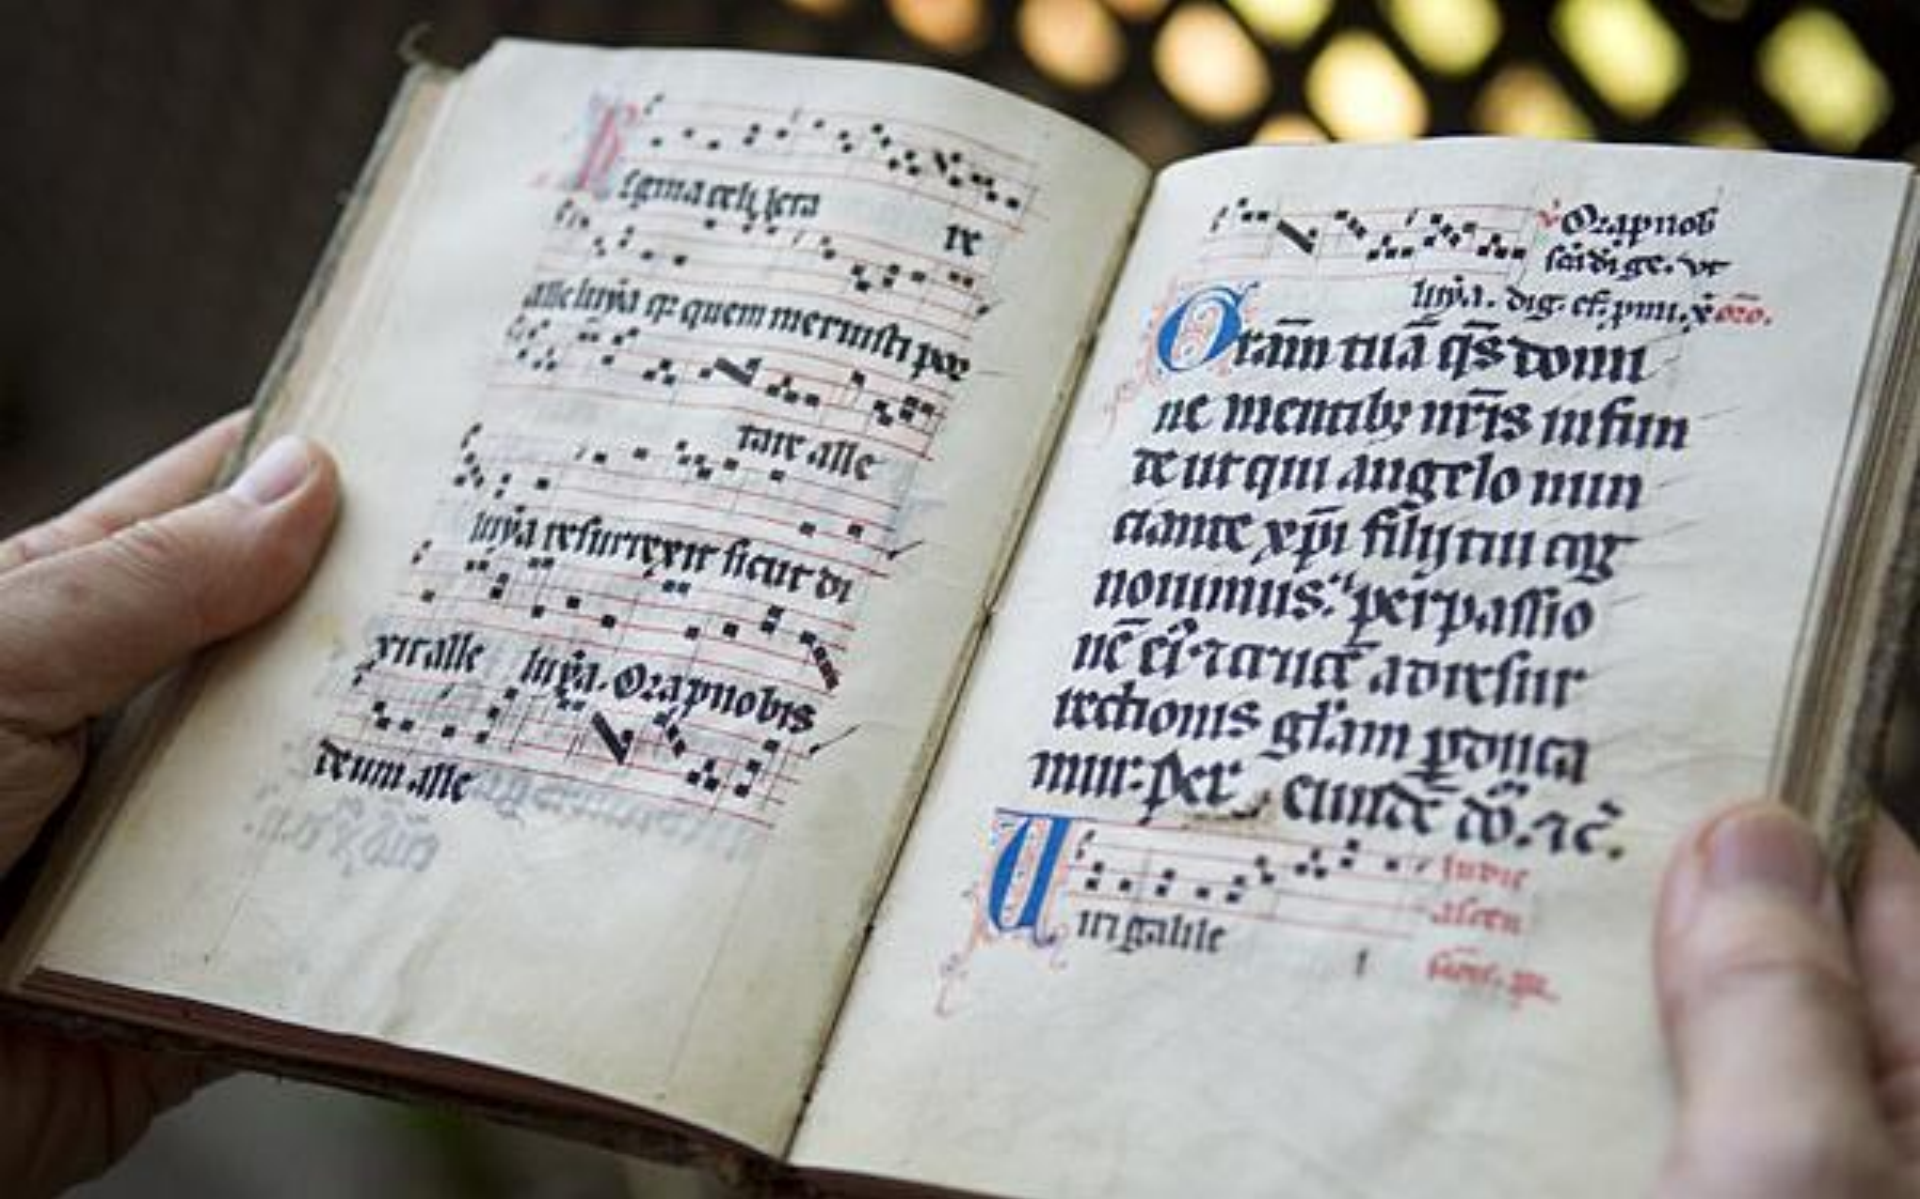 Regina celi leta
re
alleluya q: quem meruisti por
tare alle
luya resurrexit sicut di
xit alle luya. Ora p nobis
deum alle
Ora p nob
sca di ge. vt
luya. dig. ef. pmi. x oro.
Gram tuā qs domi
ne mentib; nr̄is infun
de ut qui angelo nun
ciante xp̄i filij tui
nouimus. per passio
nē ei⁊ crucē ad resur
rectionis gl'am pduca
mur. per eundē dō. ⁊c.
Uiri galile
in die
ascen